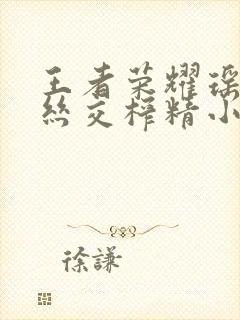 王者荣耀瑶
丝交榨精小
徐謙